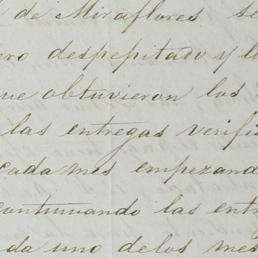 de Miraflores se
despepitado y l
que obtuvieron los
las entregas verifi
cada mes empezand
continuando las ent
da uno de los mes